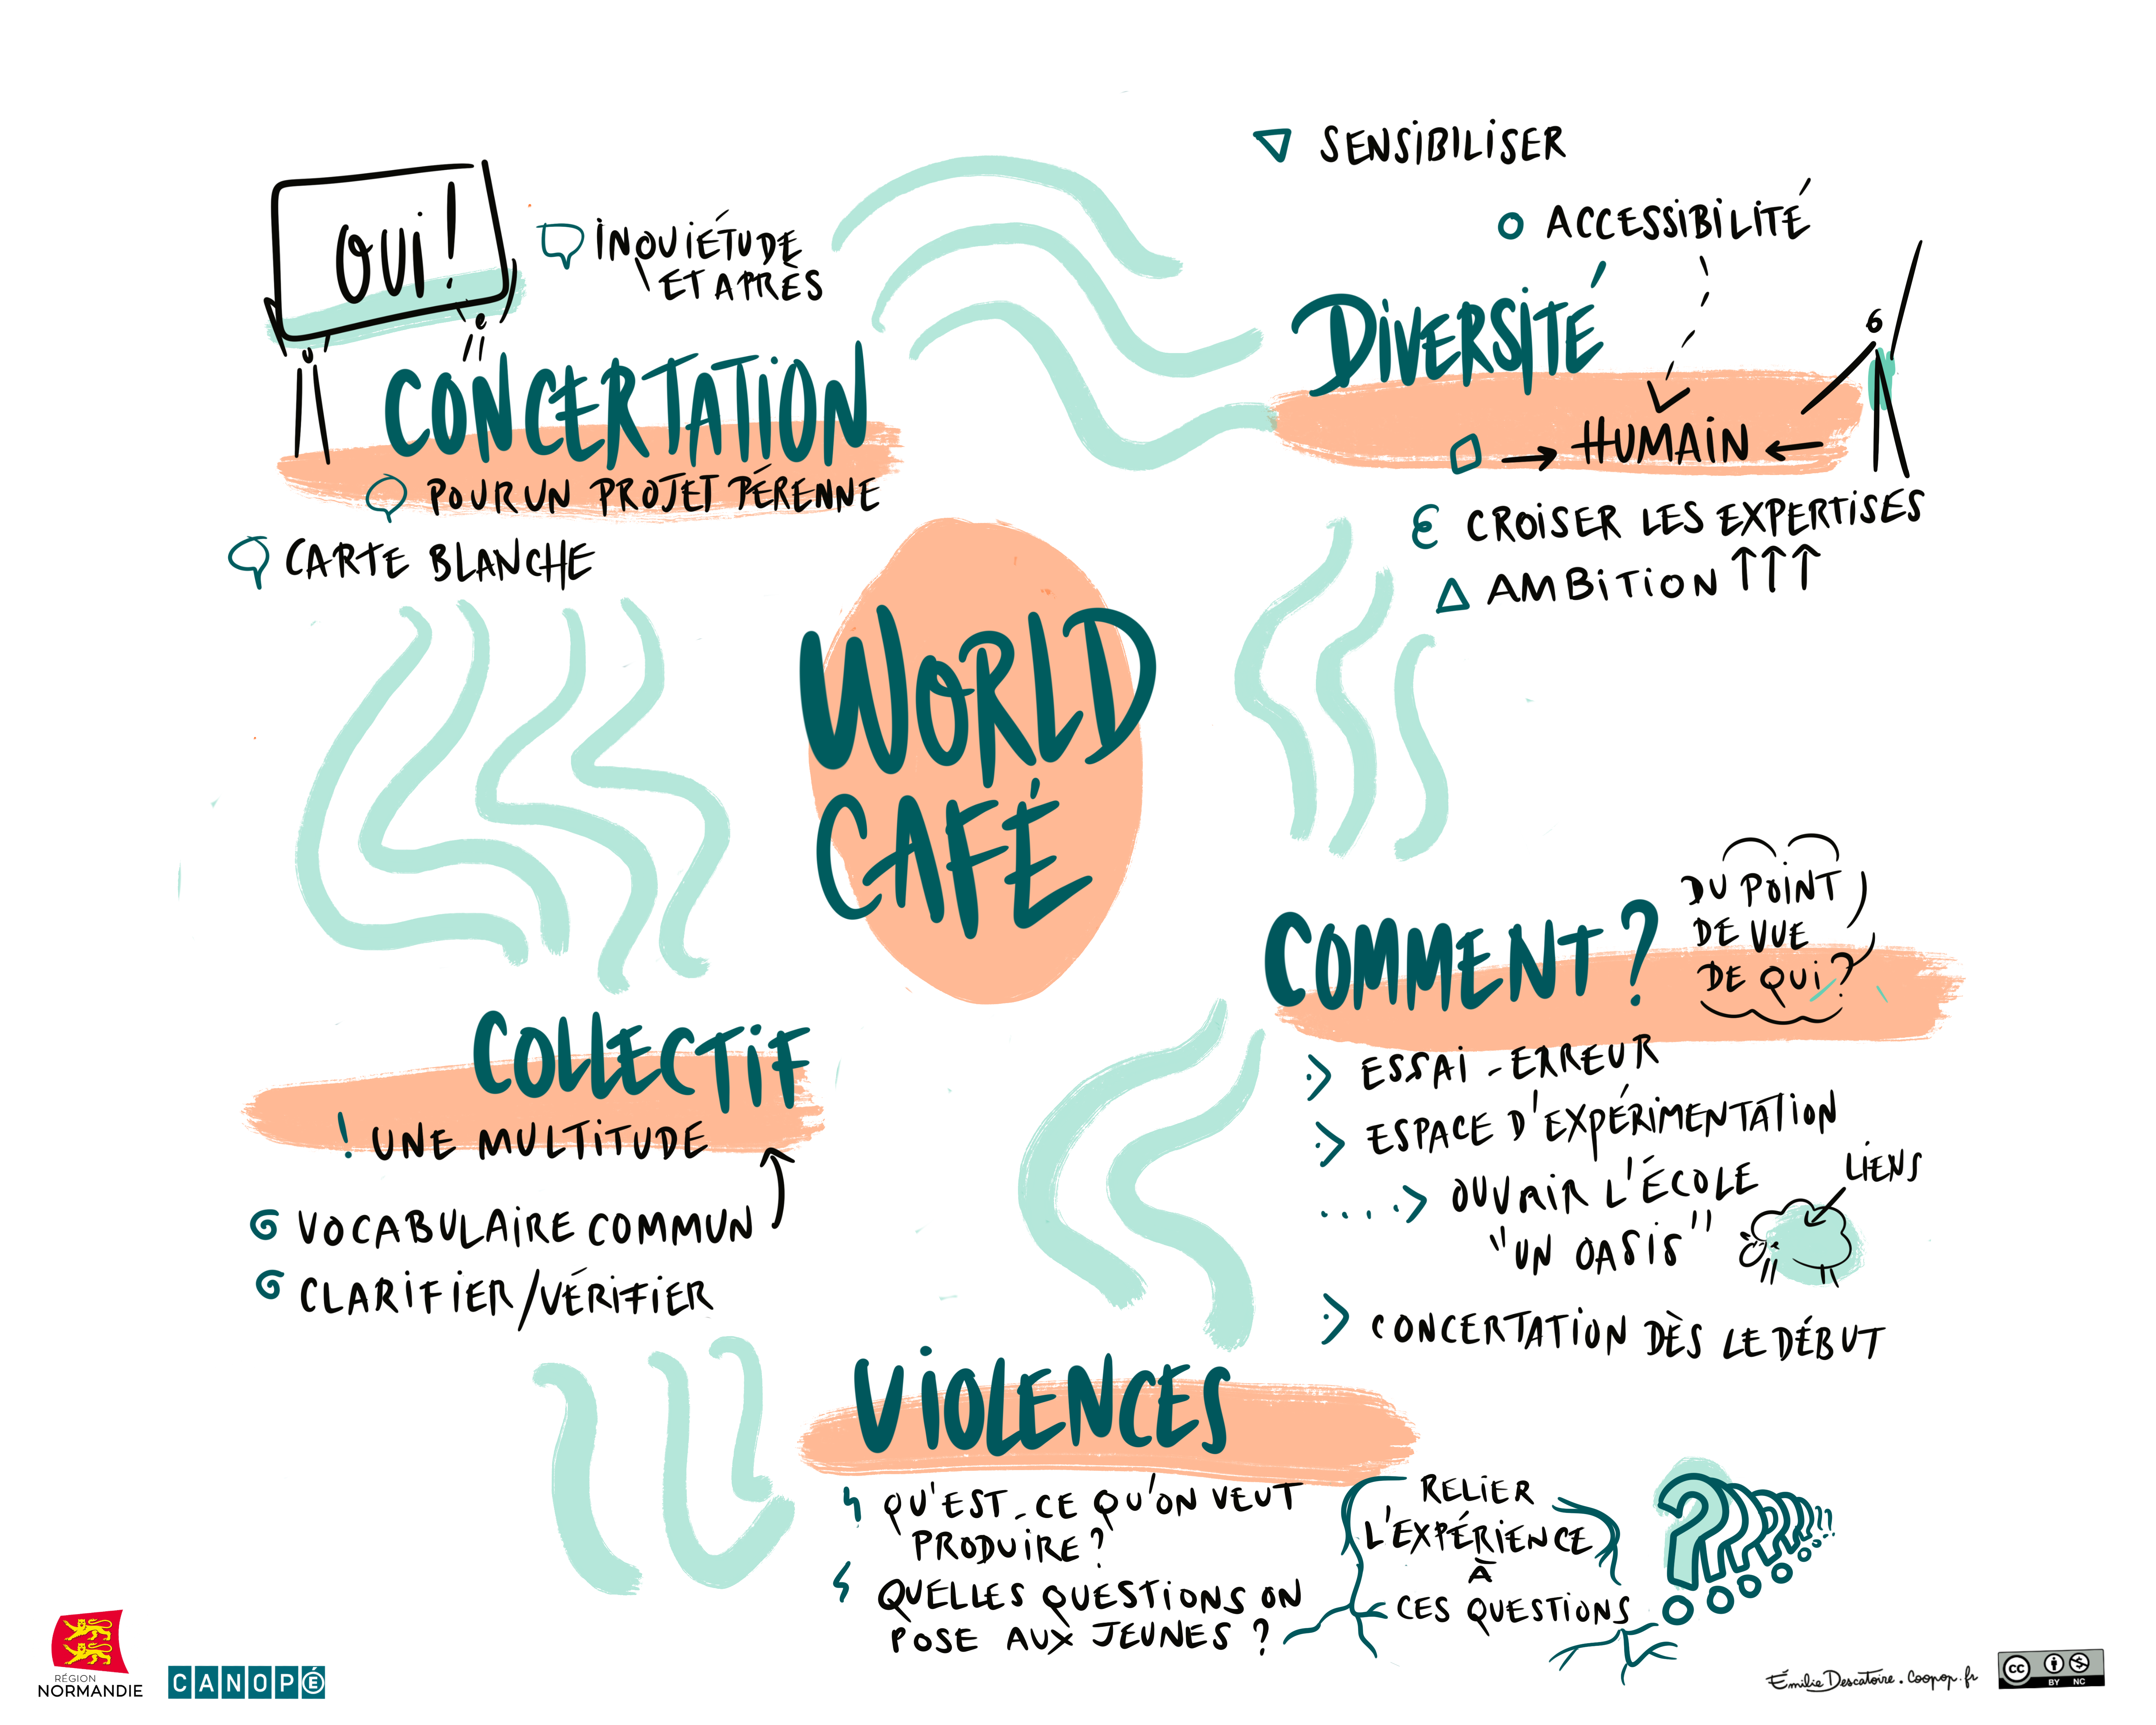 OUI !
INQUIÉTUDE
ET APRÈS
CONCERTATION
POUR UN PROJET PÉRENNE
CARTE BLANCHE
SENSIBILISER
ACCESSIBILITÉ
DIVERSITÉ
HUMAIN
CROISER LES EXPERTISES
AMBITION
WORLD
CAFÉ
COLLECTIF
! UNE MULTITUDE
VOCABULAIRE COMMUN
CLARIFIER/VÉRIFIER
COMMENT ?
DU POINT
DE VUE
DE QUI ?
ESSAI - ERREUR
ESPACE D'EXPÉRIMENTATION
OUVRIR L'ÉCOLE
"UN OASIS"
LIENS
CONCERTATION DÈS LE DÉBUT
VIOLENCES
QU'EST-CE QU'ON VEUT
PRODUIRE ?
QUELLES QUESTIONS ON
POSE AUX JEUNES ?
RELIER
L'EXPÉRIENCE
À
CES QUESTIONS
RÉGION
NORMANDIE
CANOPÉ
Émilie Descatoire . Coopop.fr
CC BY NC